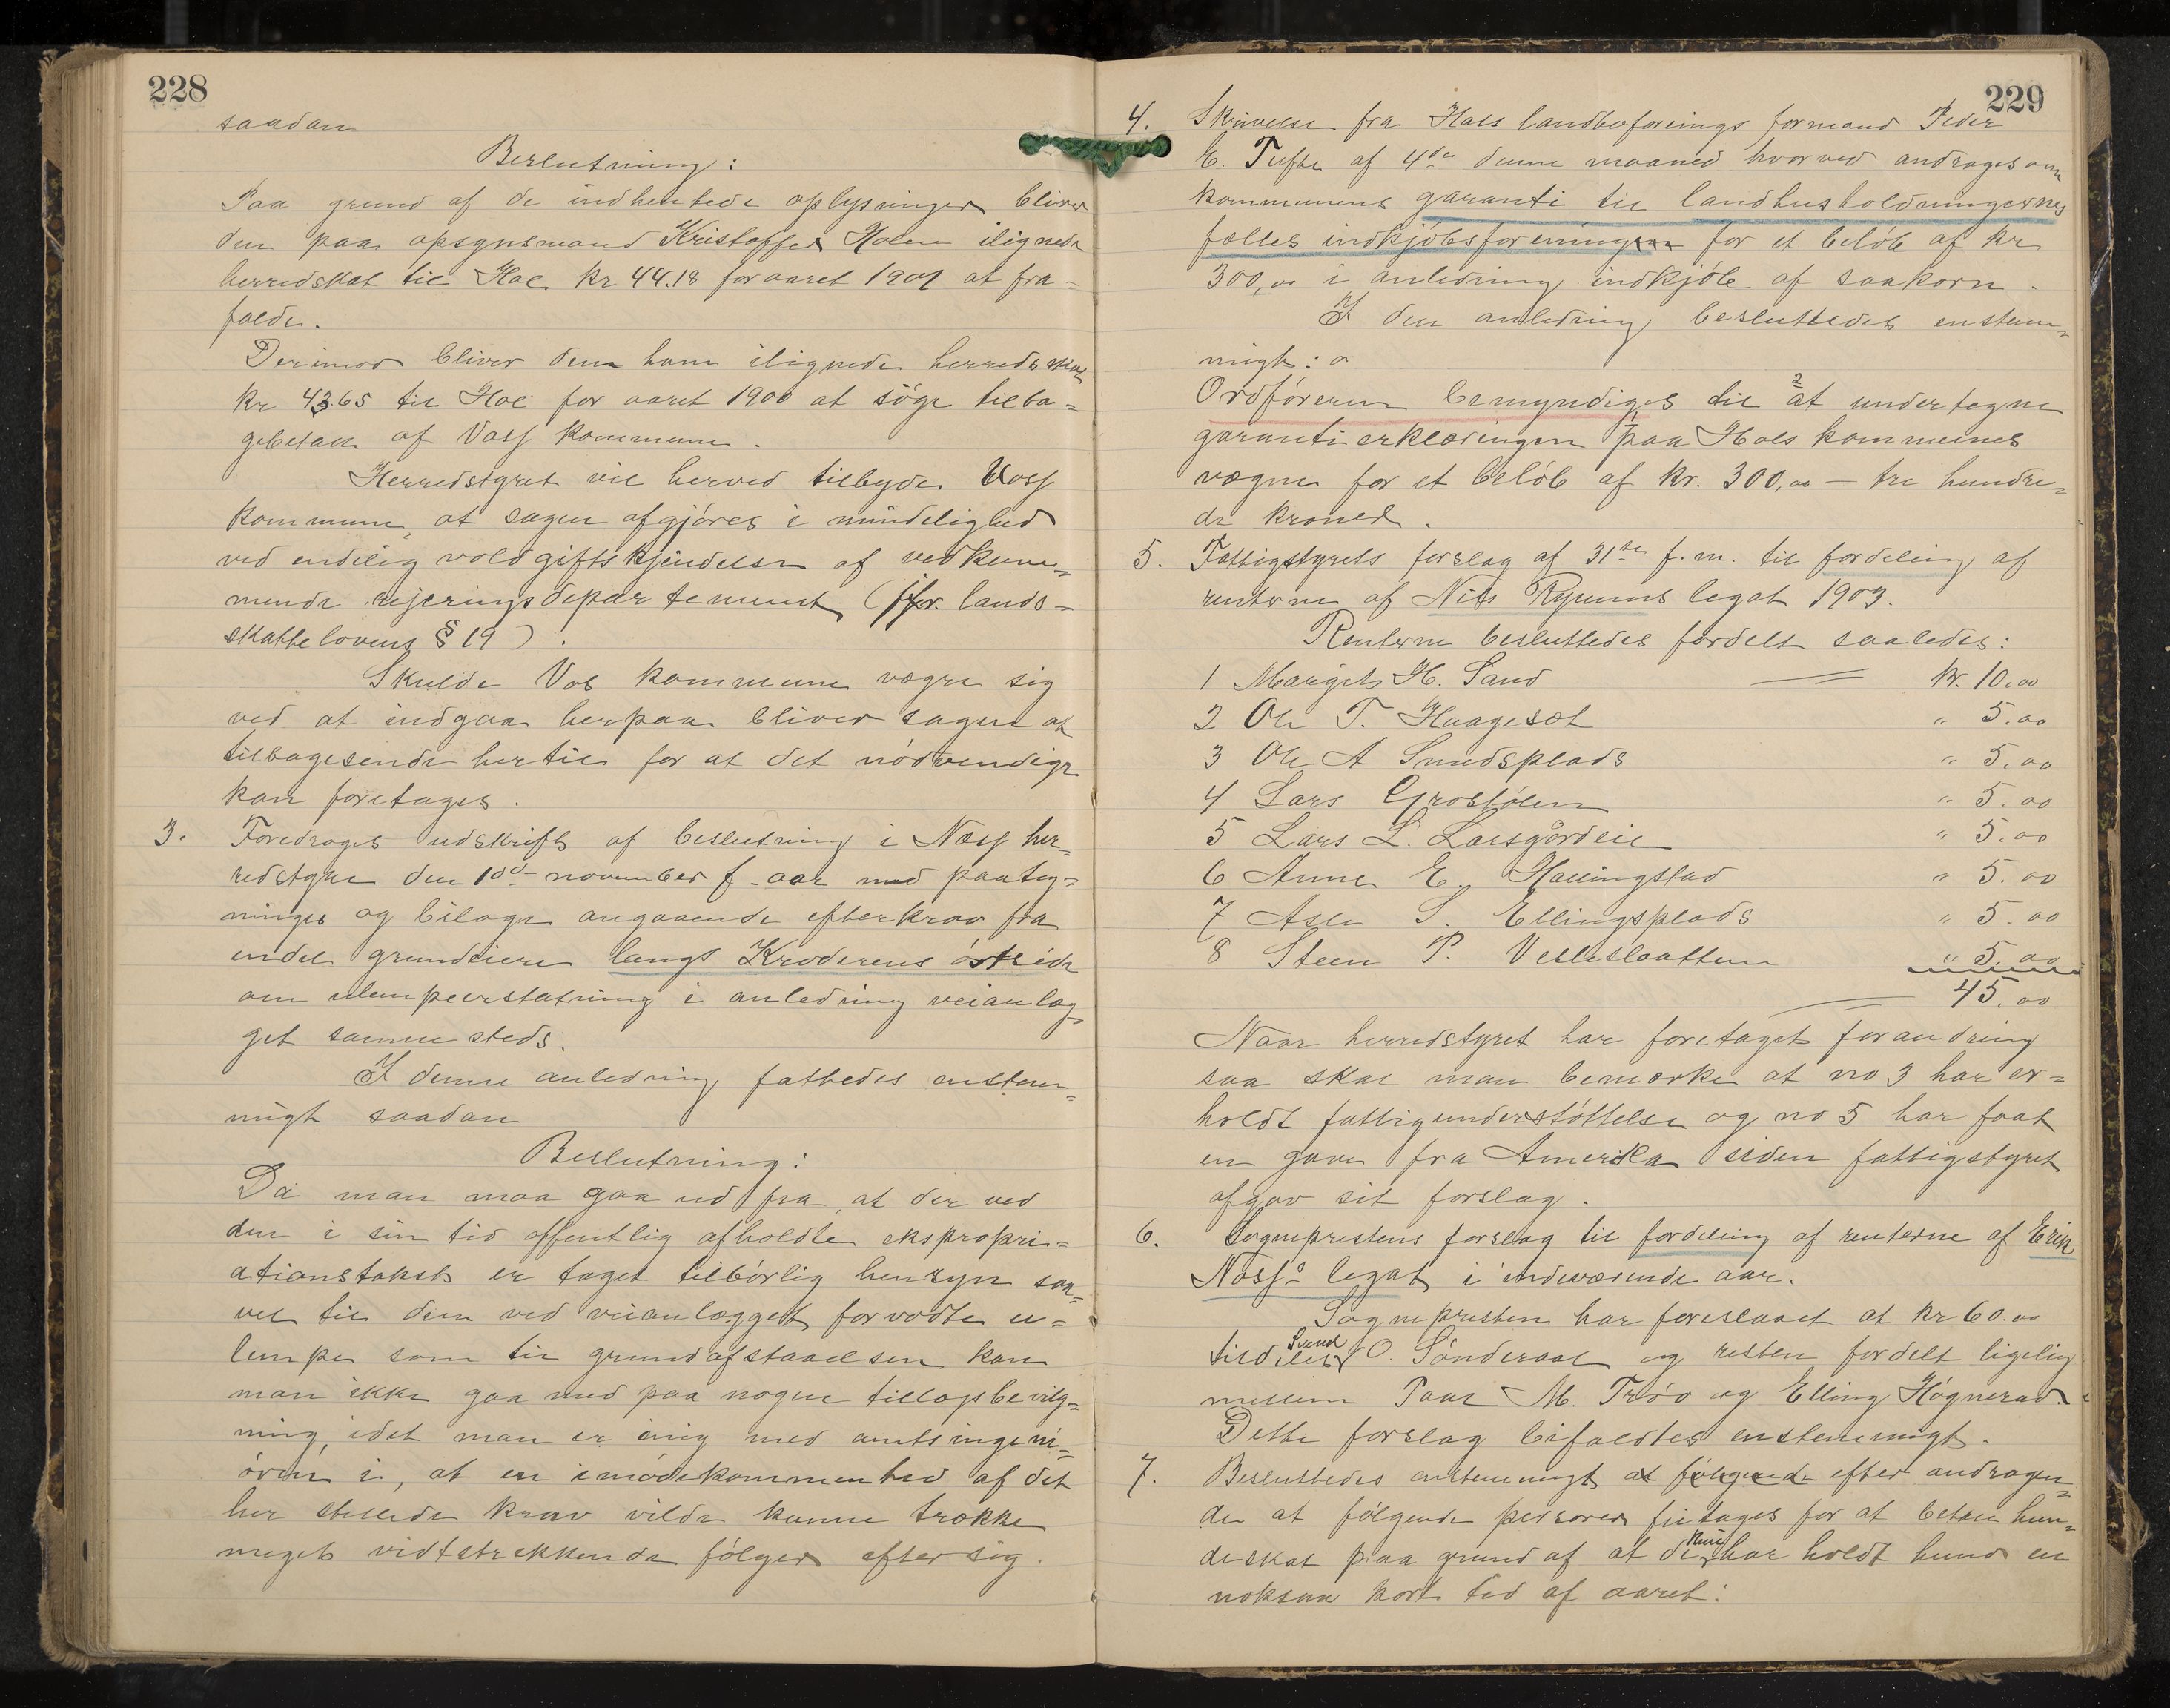 228
saadan
Beslutning:
Paa grund af de indhentede oplysninger bliver
den paa opsynsmand Kristoffer Holen ilignede
herredskat til Hol kr 44.18 for aaret 1901 at fra-
falde.
Derimod bliver den ham ilignede herredsskat
kr 43.65 til Hol for aaret 1900 at søge tilba-
gebetalt af Voss kommune.
Herredstyret vil herved tilbyde Voss
kommune, at sagen afgjøres i mindelighed
ved endelig voldgiftskjendelse af vedkom-
mende regjeringsdepartement (jfr. lands-
skattelovens § 19).
Skulde Vos kommune vægre sig
ved at indgaa herpaa bliver sagen at
tilbagesende hertil for at det nødvendige
kan foretages.
3. Foredroges udskrift af beslutning i Næss her-
redstyre den 10de november f. aar med paateg-
ninger og bilage angaaende efterkrav fra
endel grundeiere langs Krøderens østside
om ulempeerstatning i anledning veianlæg-
get sammesteds.
I denne anledning fattedes enstem-
migt saadan
Beslutning:
Da man maa gaa ud fra, at der ved
den i sin tid offentlig afholdte ekspropri-
ationstakst er taget tilbørlig hensyn saa-
vel til den ved veianlægget forvoldte u-
lempe som til grundafstaaelsen kan
man ikke gaa med paa nogen tillægsbevilg-
ning, idet man er enig med amtsingeni-
øren i, at en imødekommenhed af det
her stillede krav vilde kunne trække
meget vidtstrekkende følger efter sig.
229
4. Skrivelse fra Hols landboforenings formand Peder
E. Tufte af 4de denne maaned hvorved andrages om
kommunens garanti til landhusholdningernes
fælles indkjøbsforeningen for et beløb af kr
300,00 i anledning indkjøb af saakorn.
I den anledning besluttedes enstem-
migt:
Ordføreren bemyndiges til at undertegne
garantierklæringen paa Hols kommunes
vægne for et beløb af kr. 300,00 — tre hundre-
de kroner.
5. Fattigstyrets forslag af 31te f.m. til fordeling af
renterne af Nils Rynnns legat 1903.
Renterne besluttedes fordelt saaledes:
1 Margit H. Sand kr. 10,00
2 Ole T. Haagesæt " 5.00
3 Ole A Sundsplads " 5.00
4 Lars Grostølen " 5.00
5 Lars L. Larsgårdeie " 5.00
6 Anne E. Hallingstad " 5.00
7 Asle S. Ellingsplads " 5.00
8 Steen P. Vesleslaatten " 5.00
45.00
Naar herredstyret har foretaget forandring
saa skal man bemærke at no 3 har er-
holdt fattigunderstøttelse og no 5 har faat
en gave fra Amerika siden fattigstyret
afgav sit forslag.
6. Sogneprestens forslag til fordeling af renterne af Erik
Næss's legat i indeværende aar.
Sognepresten har foreslaaet at kr 60.00
tildeles Svend O. Sønderaal og resten fordelt ligelig
mellem Paal M. Trøo og Elling Høgnerud.
Dette forslag bifaldtes enstemmigt.
7. Besluttedes enstemmigt at følgende efter andragen-
de at følgende personer fritages for at betale hun-
deskat paa grund af at de kun har holdt hund en
noksaa kort tid af aaret: